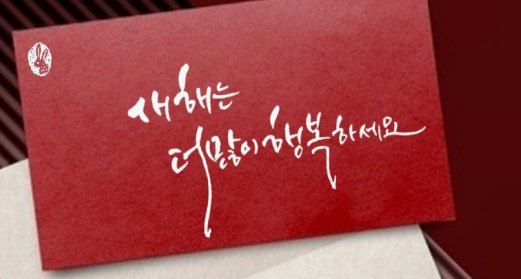 새해는
더 많이 행복하세요